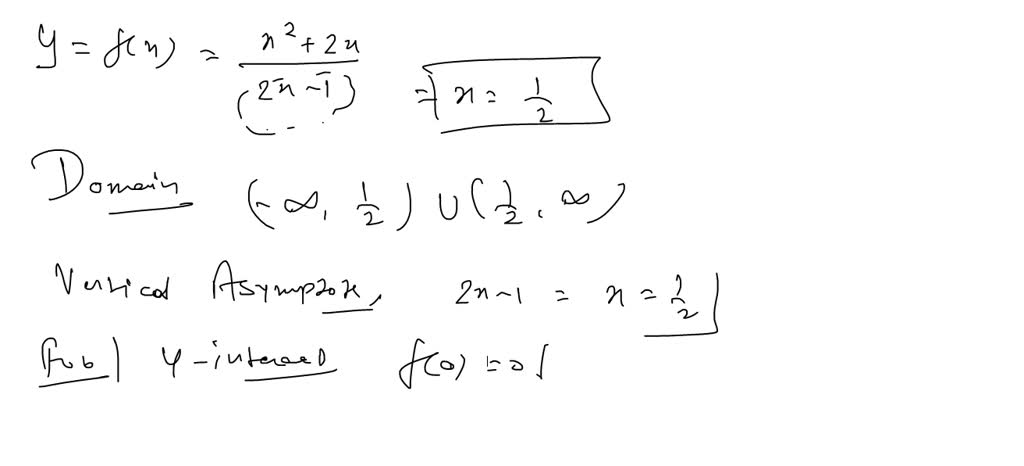 y = f(x) = x² + 2x / (2x - 1) ⇒ x = 1/2
Domain (-∞, 1/2) ∪ (1/2, ∞)
Vertical Asymptote, 2x - 1 = x = 1/2
y-intercept f(0) = 0